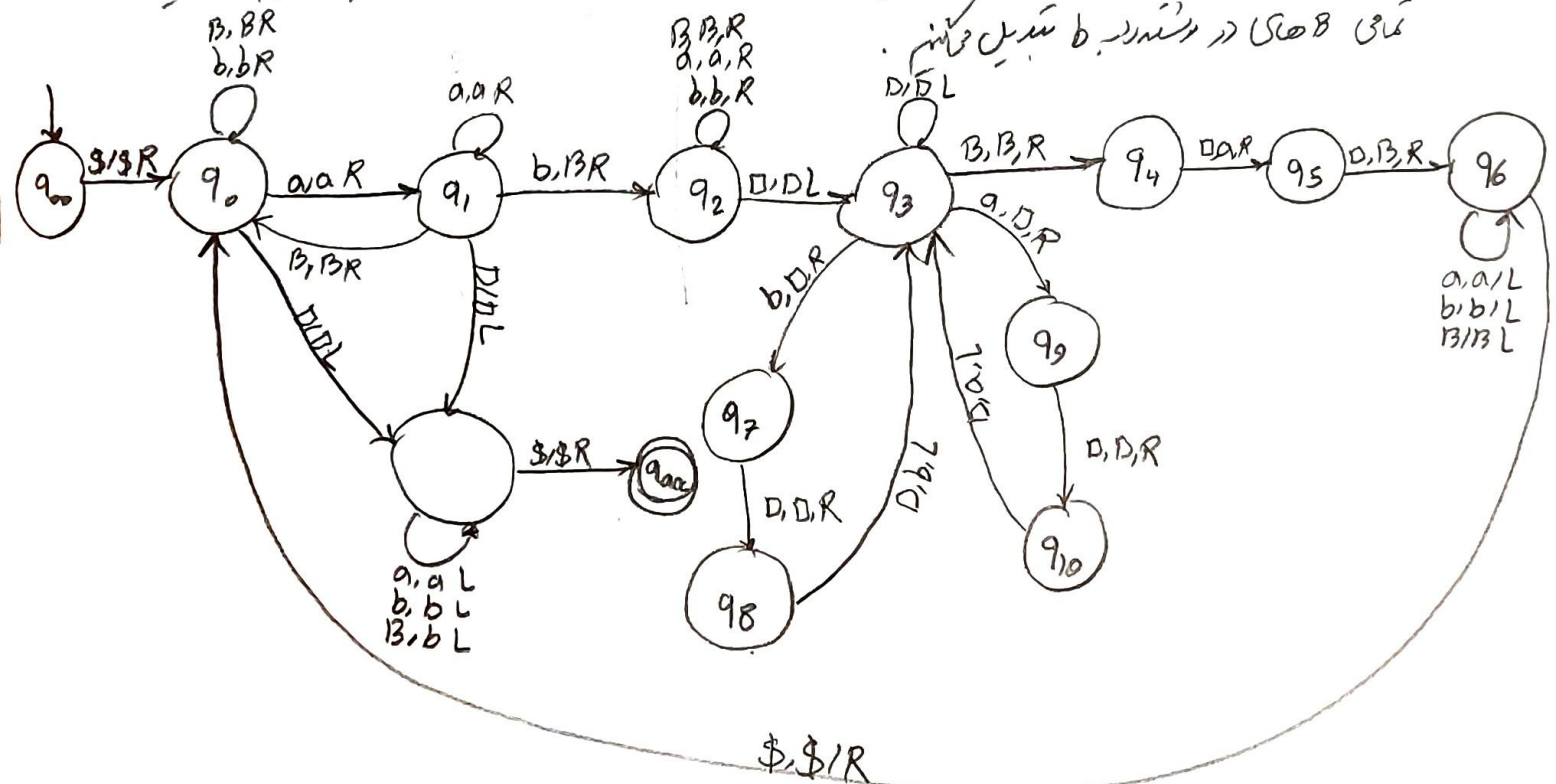 تمامی B های در رشته را به b تبدیل می‌کنیم.
B, BR
b, bR
B, B, R
a, a, R
b, b, R
a, a R
□, □ L
$/$R
q₀₀
q₀
a, a R
q₁
b, BR
q₂
□, □ L
q₃
B, B, R
q₄
□, a, R
q₅
□, B, R
q₆
B, BR
□, □ L
□/□ L
b, □, R
a, □, R
a, a/L
b, b/L
B/B L
q₇
q₉
□, a, L
□, b, L
□, □, R
□, □, R
$/$R
q₈
q₁₀
a, a L
b, b L
B, b L
$, $/R